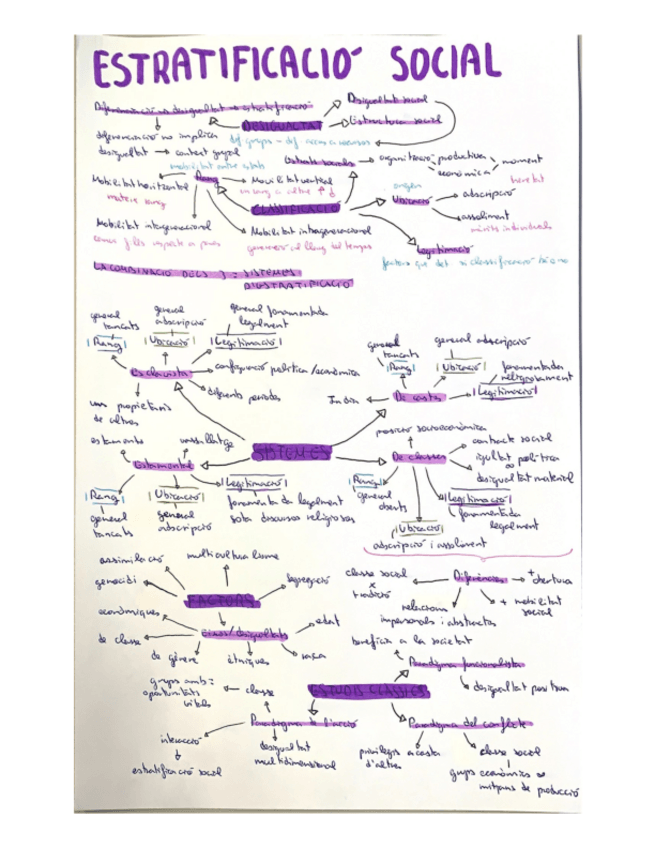 ESTRATIFICACIÓ SOCIAL
Diferenciació no desigualtat → estratificació
Desigualtat social
DESIGUALTAT
Estructura social
diferenciació no implica
desigualtat → context grupal
dif grups - dif acces a recursos
Estrats socials → organització productiva
econòmica
moment
heretat
mobilitat entre estrats
Mobilitat horitzontal
mateix rang
Rang
Mobilitat vertical
un rang a altre
origen
Ubicació
adscripció
assoliment
mèrits individuals
CLASSIFICACIÓ
Mobilitat intergeneracional
Mobilitat intrageneracional
Legitimació
LA COMBINACIÓ DELS 3 = SISTEMES
D'ESTRATIFICACIÓ
general
tancats
general
adscripció
general fonamentada
legalment
Rang
Ubicació
Legitimació
Esclavista
configuració política/econòmica
diferents períodes
uns propietaris
de altres
general
tancats
general adscripció
Rang
Ubicació
fonamentada
religiosament
Legitimació
Índia
De castes
estaments
vassallatge
SISTEMES
Estamental
Rang
Ubicació
Legitimació
general
tancats
general
adscripció
fonamentada legalment
sota discursos religiosos
posició socioeconòmica
De classes
contracte social
igualtat política
desigualtat material
Rang
general
oberts
Legitimació
fonamentada
legalment
Ubicació
adscripció i assoliment
assimilació
multiculturalisme
genocidi
segregació
FACTORS
econòmiques
eixos/desigualtats
edat
de classe
de gènere
ètniques
raça
classe social
x
tradició
Diferències
+ obertura
+ mobilitat
social
relacions
impersonals i abstractes
benefici a la societat
Paradigma funcionalista
desigualtat positiva
grups amb =
oportunitats
vitals
classe
ESTUDIS CLÀSSICS
Paradigma de l'acció
Paradigma del conflicte
interacció
estratificació social
desigualtat
multidimensional
privilegis a costa
d'altres
classe social
grups econòmics
mitjans de producció